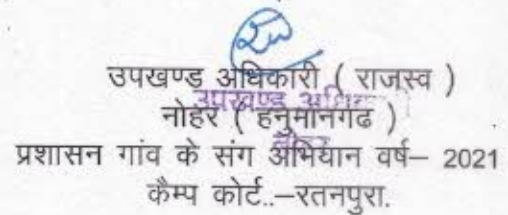 उपखण्ड अधिकारी ( राजस्व )
उपखण्ड अधि
नोहर ( हनुमानगढ )
प्रशासन गांव के संग अभियान वर्ष– 2021
कैम्प कोर्ट..–रतनपुरा.